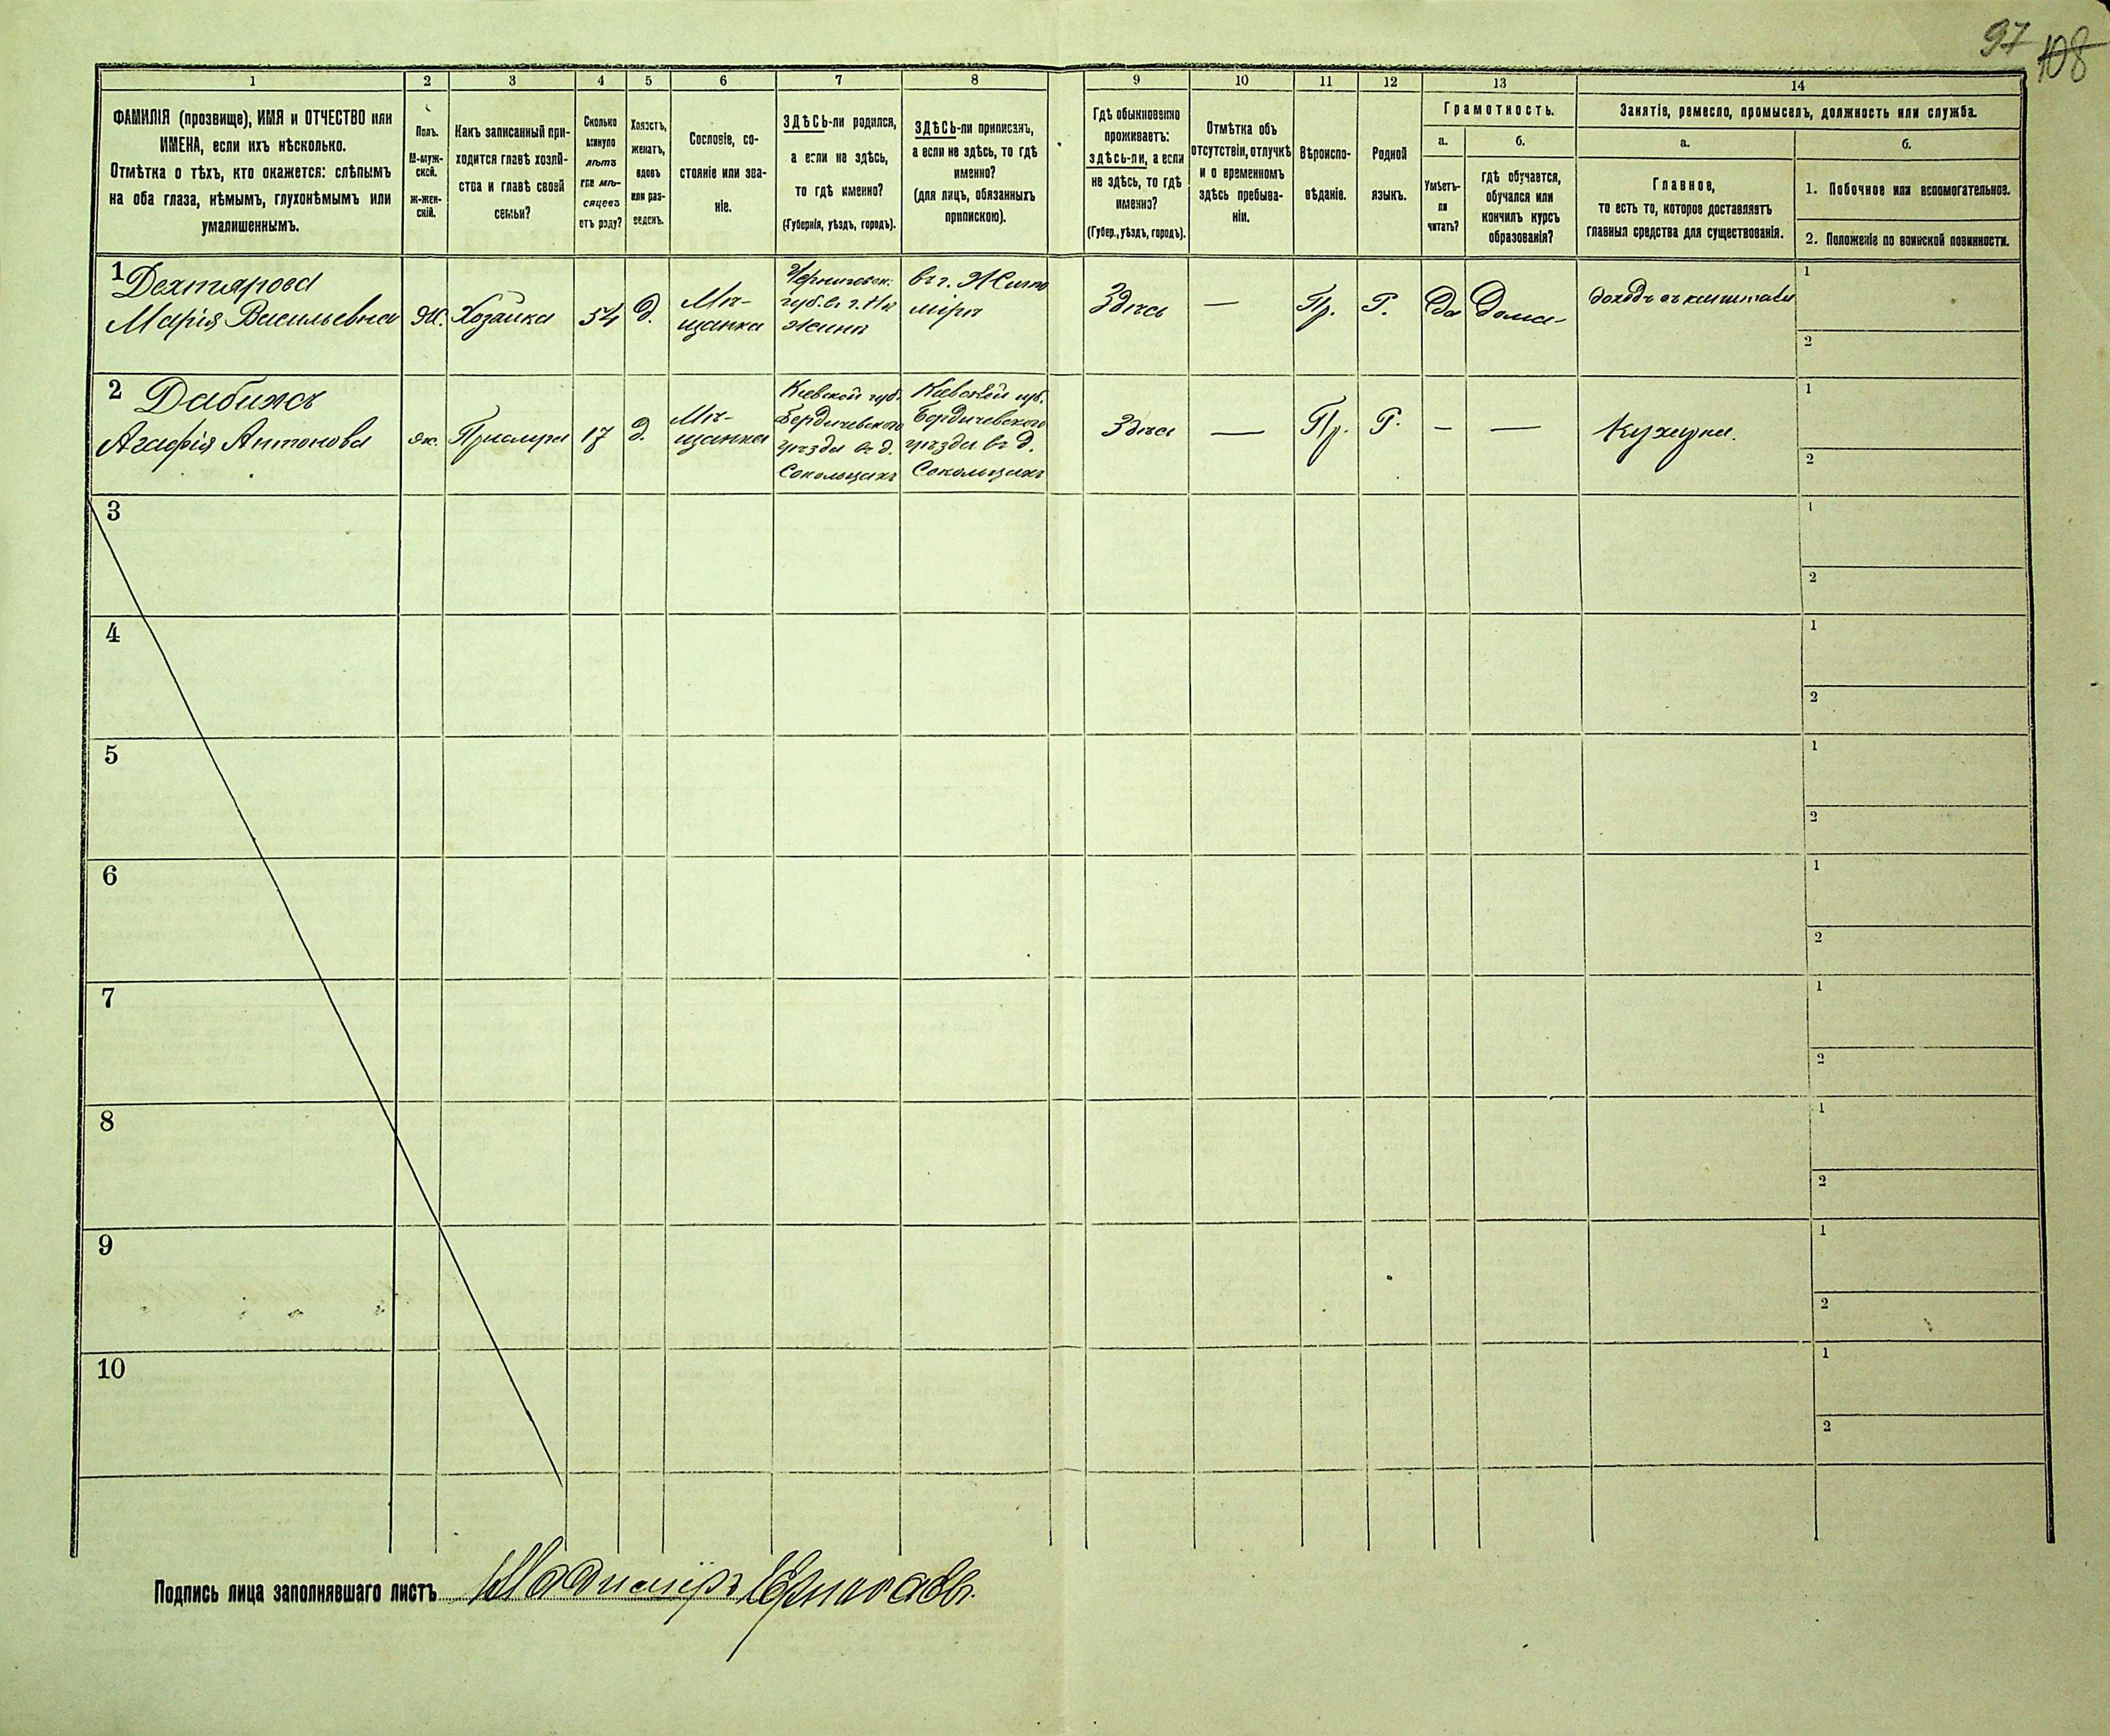 97 108
1 2 3 4 5 6 7 8 9 10 11 12 13 14
ФАМИЛІЯ (прозвище), ИМЯ и ОТЧЕСТВО или
ИМЕНА, если ихъ нѣсколько.
Отмѣтка о тѣхъ, кто окажется: слѣпымъ
на оба глаза, нѣмымъ, глухонѣмымъ или
умалишеннымъ.
Полъ.
М-муж-
ской.
Ж-жен-
скій.
Какъ записанный при-
ходится главѣ хозяй-
ства и главѣ своей
семьи?
Сколько
минуло
лѣтъ
или мѣ-
сяцевъ
отъ роду?
Холостъ,
женатъ,
вдовъ
или раз-
веденъ.
Сословіе, со-
стояніе или зва-
ніе.
ЗДѢСЬ-ли родился,
а если не здѣсь,
то гдѣ именно?
(Губернія, уѣздъ, городъ).
ЗДѢСЬ-ли приписанъ,
а если не здѣсь, то гдѣ
именно?
(для лицъ, обязанныхъ
припискою).
Гдѣ обыкновенно
проживаетъ:
здѣсь-ли, а если
не здѣсь, то гдѣ
именно?
(Губер., уѣздъ, городъ).
Отмѣтка объ
отсутствіи, отлучкѣ
и о временномъ
здѣсь пребыва-
ніи.
Вѣроиспо-
вѣданіе.
Родной
языкъ.
Грамотность.
а.
Умѣетъ-
ли
читать?
б.
гдѣ обучается,
обучался или
кончилъ курсъ
образованія?
Занятіе, ремесло, промыселъ, должность или служба.
а.
Главное,
то есть то, которое доставляетъ
главныя средства для существованія.
б.
1. Побочное или вспомогательное.
2. Положеніе по воинской повинности.
1 Дехтярова
Марія Васильевна
Ж.
Хозяйка
54
д.
Мѣ-
щанка
Черниговск.
губ. въ г. Нѣ
жинѣ
въ г. Жито
мірѣ
Здѣсь
—
Пр.
Р.
Да
Дома
доходъ съ капитала
1
2
2 Дабижъ
Агафія Антонова
ж.
Прислуга
17
д.
Мѣ-
щанка
Кіевской губ.
Бердичевскаго
уѣзда въ д.
Сокольцахъ
Кіевской губ.
Бердичевскаго
уѣзда въ д.
Сокольцахъ
Здѣсь
—
Пр.
Р.
—
—
Кухарка.
1
2
3
1
2
4
1
2
5
1
2
6
1
2
7
1
2
8
1
2
9
1
2
10
1
2
Подпись лица заполнявшаго листъ